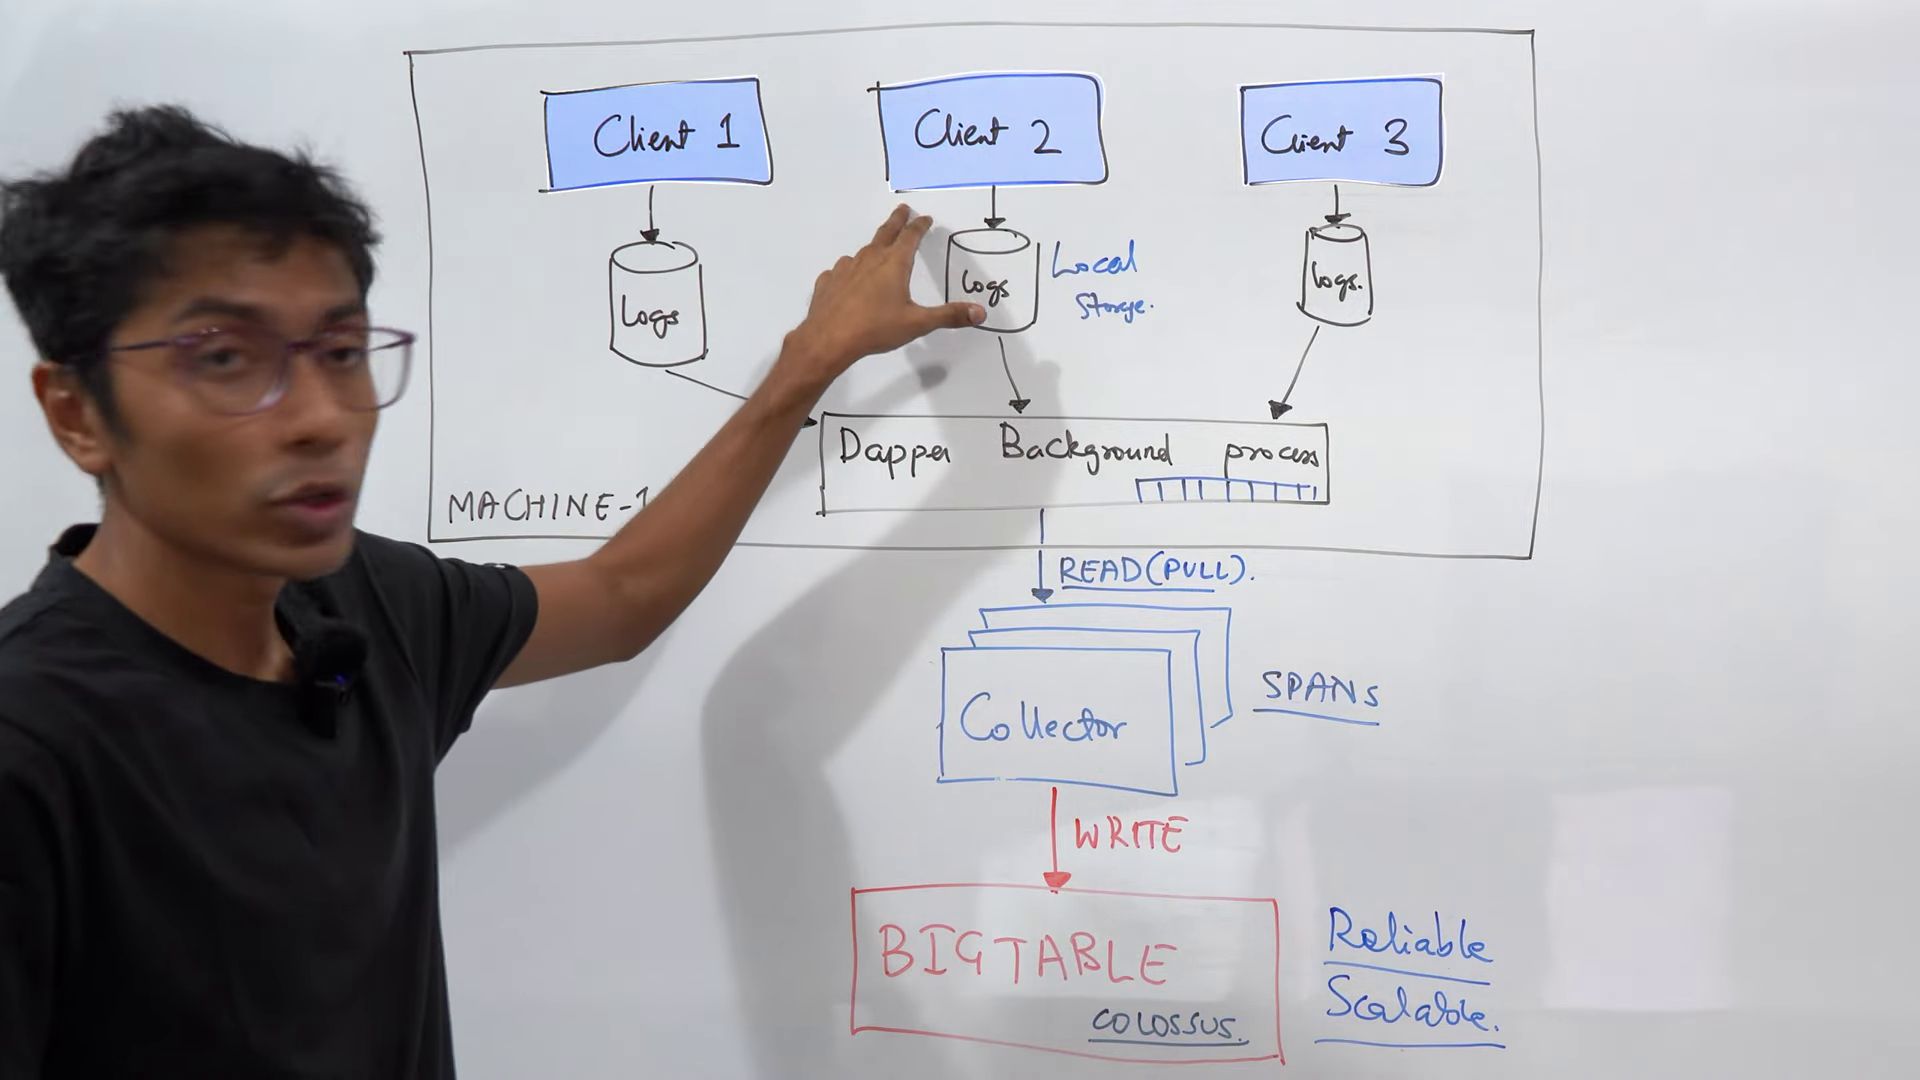 Client 1
Client 2
Client 3
Logs
Logs
Local
Storage.
logs.
Dapper Background process
MACHINE-1
READ(PULL).
Collector
SPANS
WRITE
BIGTABLE
COLOSSUS.
Reliable
Scalable.